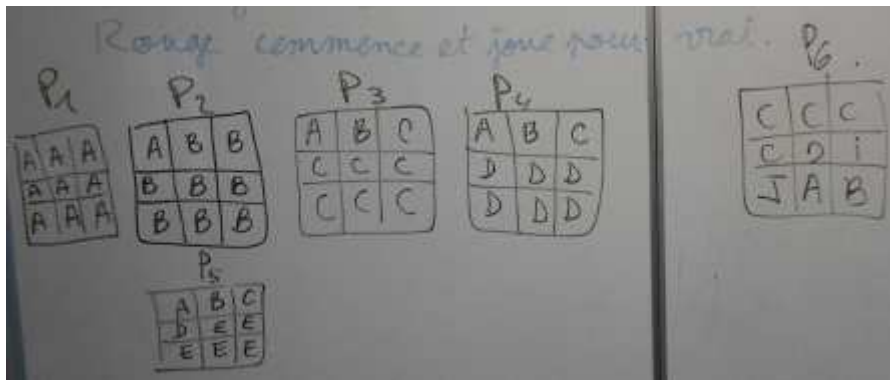 Rouge commence et joue pour vrai.
P1
A A A
A A A
A A A
P2
A B B
B B B
B B B
P3
A B C
C C C
C C C
P4
A B C
D D D
D D D
P5
A B C
D E E
E E E
P6
C C C
C D i
J A B